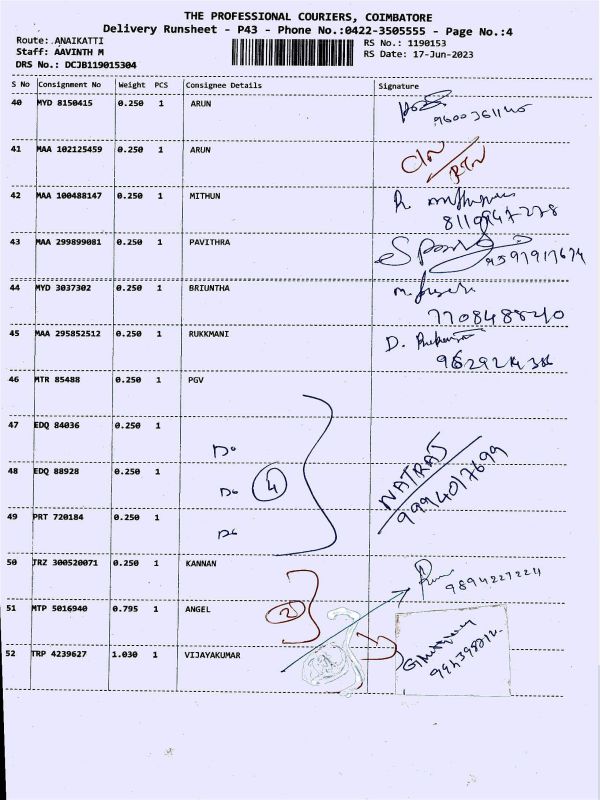 THE PROFESSIONAL COURIERS, COIMBATORE
Delivery Runsheet - P43 - Phone No.:0422-3505555 - Page No.:4
Route: ANAIKATTI RS No.: 1190153
Staff: AAVINTH M RS Date: 17-Jun-2023
DRS No.: DCJB119015304
S No Consignment No Weight PCS Consignee Details Signature
40 MYD 8150415 0.250 1 ARUN
9600361140
41 MAA 102125459 0.250 1 ARUN
C/N
RTN
42 MAA 100488147 0.250 1 MITHUN
43 MAA 299899081 0.250 1 PAVITHRA
9597917674
44 MYD 3037302 0.250 1 BRIUNTHA
7708488240
45 MAA 295852512 0.250 1 RUKKMANI
D.
46 MTR 85488 0.250 1 PGV
47 EDQ 84036 0.250 1
Do
48 EDQ 88928 0.250 1
Do 4
NATRAJ
9994017699
49 PRT 720184 0.250 1
Do
50 JRZ 300520071 0.250 1 KANNAN
9894227224
51 MTP 5016940 0.795 1 ANGEL
2
52 TRP 4239627 1.030 1 VIJAYAKUMAR